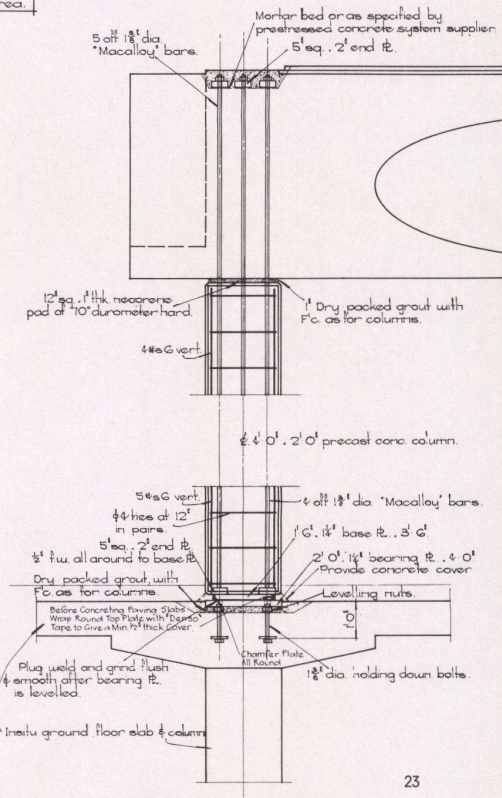 rea.
5 off 1⅜" dia.
"Macalloy" bars.
Mortar bed or as specified by
prestressed concrete system supplier.
5" sq. . 2" end ℞.
12" sq. . 1" thk. neoprene
pad of 70° durometer hard.
1" Dry packed grout with
F'c. as for columns.
4#s6 vert.
₵ 4'0" . 2'0" precast conc. column.
5#s6 vert.
4 off 1⅜" dia. "Macalloy" bars.
#4 ties at 12"
in pairs.
5" sq. . 2" end ℞.
1'6" . 1¼" base ℞. . 3'6"
½" f.w. all around to base ℞.
2'0" . 1¼" bearing ℞. . 4'0"
Provide concrete cover
Dry packed grout, with
F'c. as for columns.
Levelling nuts.
Before Concreting Paving Slabs
Wrap Round Top Plate with "Denso"
Tape to Give a Min. ½" thick Cover.
1'0"
Chamfer Plate
All Round
Plug weld and grind flush
& smooth after bearing ℞.
is levelled.
1⅜" dia. holding down bolts.
Insitu ground floor slab & column
23